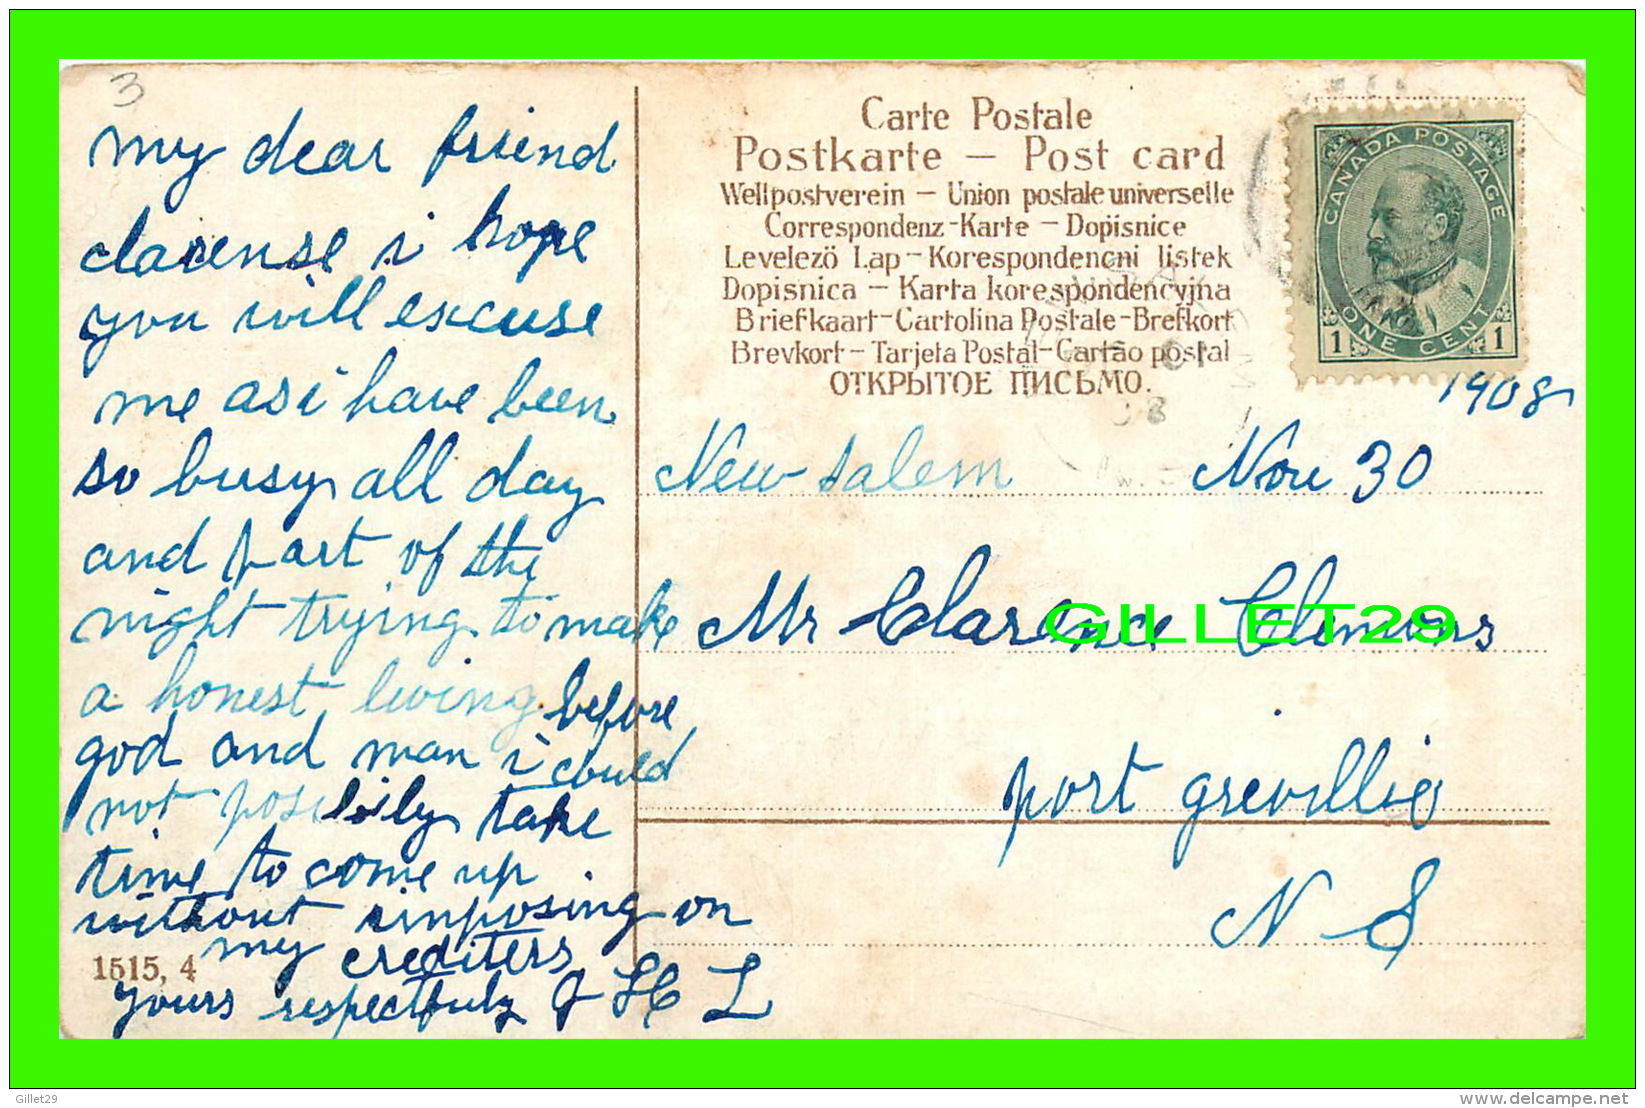 3
my dear friend
clarense i hope
you will excuse
me as i have been
so busy all day
and part of the
night trying to make
a honest living before
god and man i could
not posibily take
time to come up
without imposing on
my crediters
yours respectfuly J H L
1515, 4
Carte Postale
Postkarte — Post card
Weltpostverein — Union postale universelle
Correspondenz-Karte — Dopisnice
Levelező Lap — Korespondencni listek
Dopisnica — Karta korespondencyjna
Briefkaart — Cartolina Postale — Brefkort
Brevkort — Tarjeta Postal — Cartão postal
ОТКРЫТОЕ ПИСЬМО.
CANADA POSTAGE
ONE CENT
1 1
1908
New Salem Nov 30
Mr Clarence Clemens
GILLET29
port grevillie
N S
Gillet29
delcampe.net